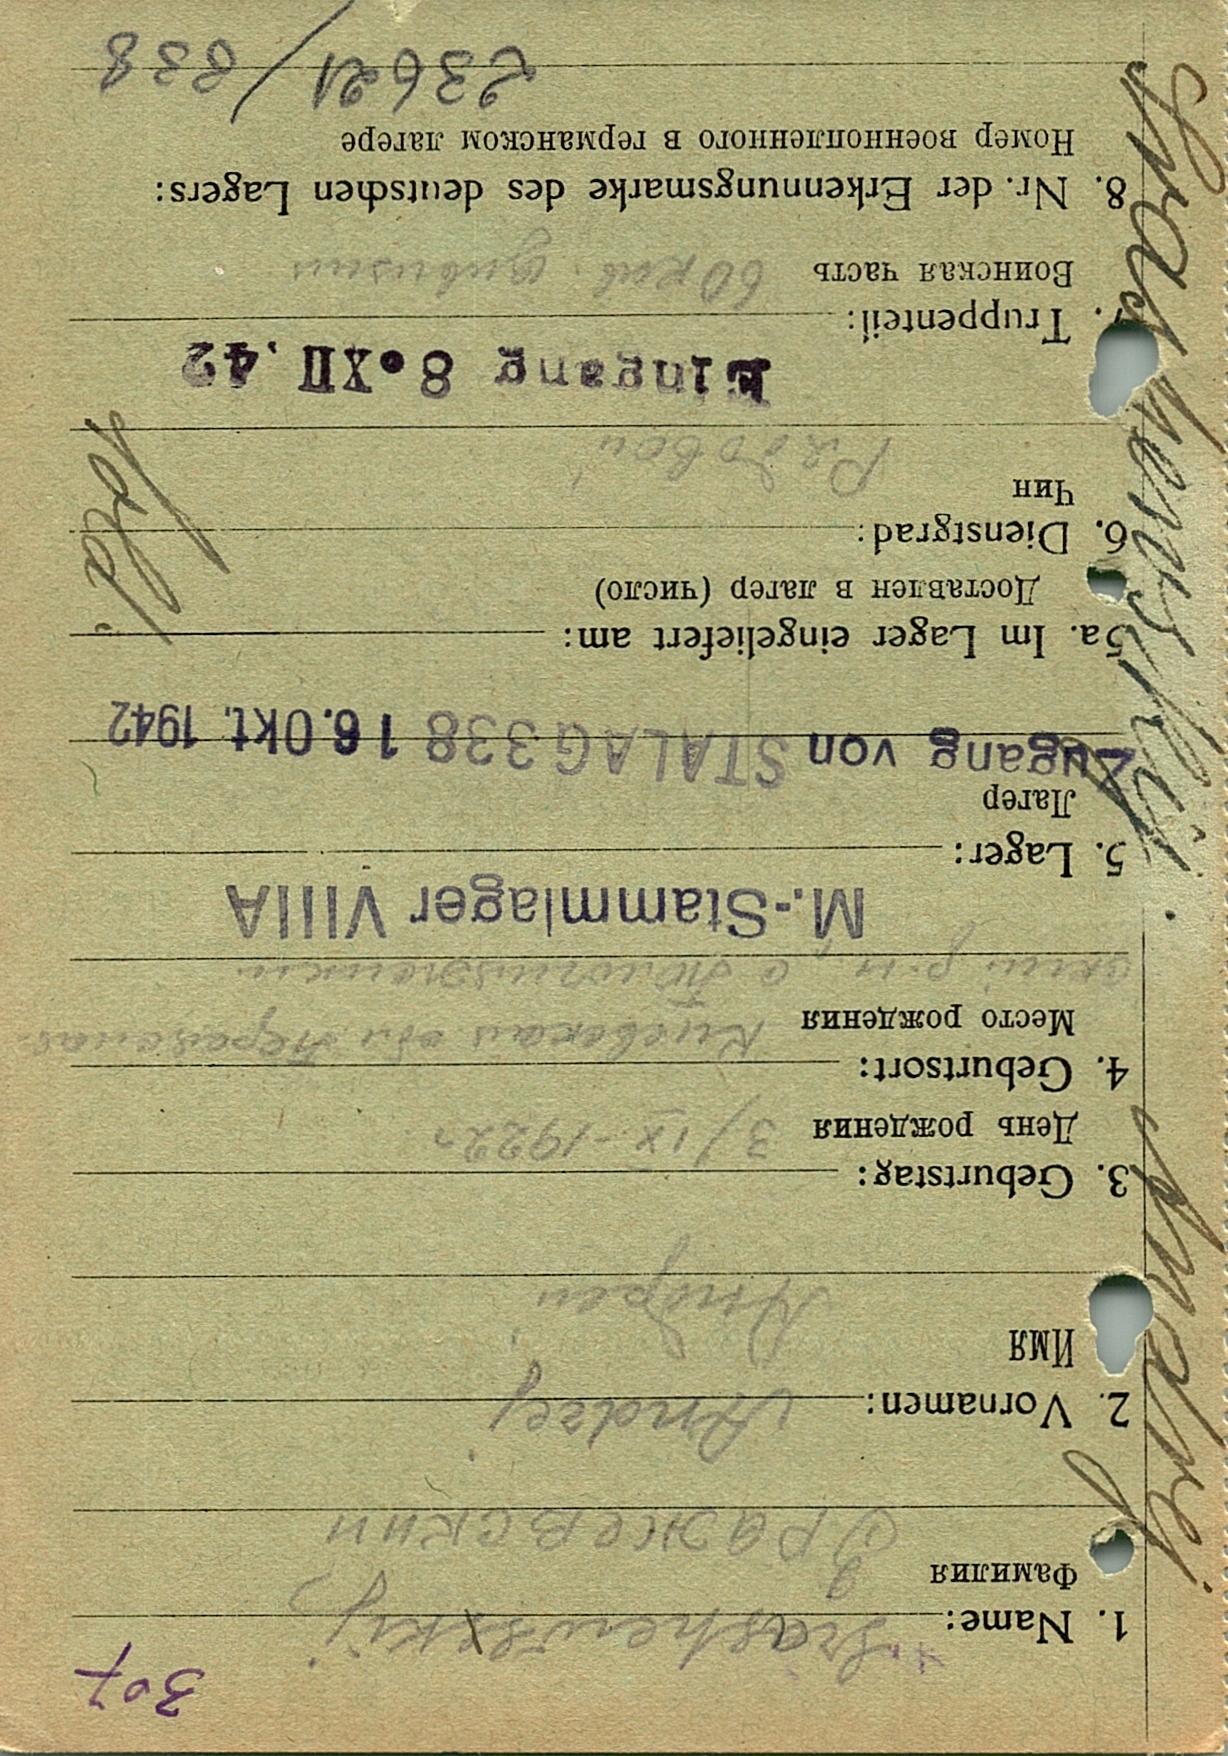 307
1. Name:
Фамилия
2. Vornamen: Andrej
Имя Андрей
3. Geburtstag:
День рождения 3/IX-1922г
4. Geburtsort:
Место рождения Киевская обл
ский р-н, с
M.-Stammlager VIIIA
5. Lager:
Лагер
Zugang von STALAG 338 16. Okt. 1942
5a. Im Lager eingeliefert am:
Доставлен в лагер (число)
6. Dienstgrad:
Чин
Рядовой
Eingang 8.XII.42
7. Truppenteil:
Воинская часть 60 кав. дивизии
8. Nr. der Erkennungsmarke des deutschen Lagers:
Номер военнопленного в германском лагере
23621/338
Andrej